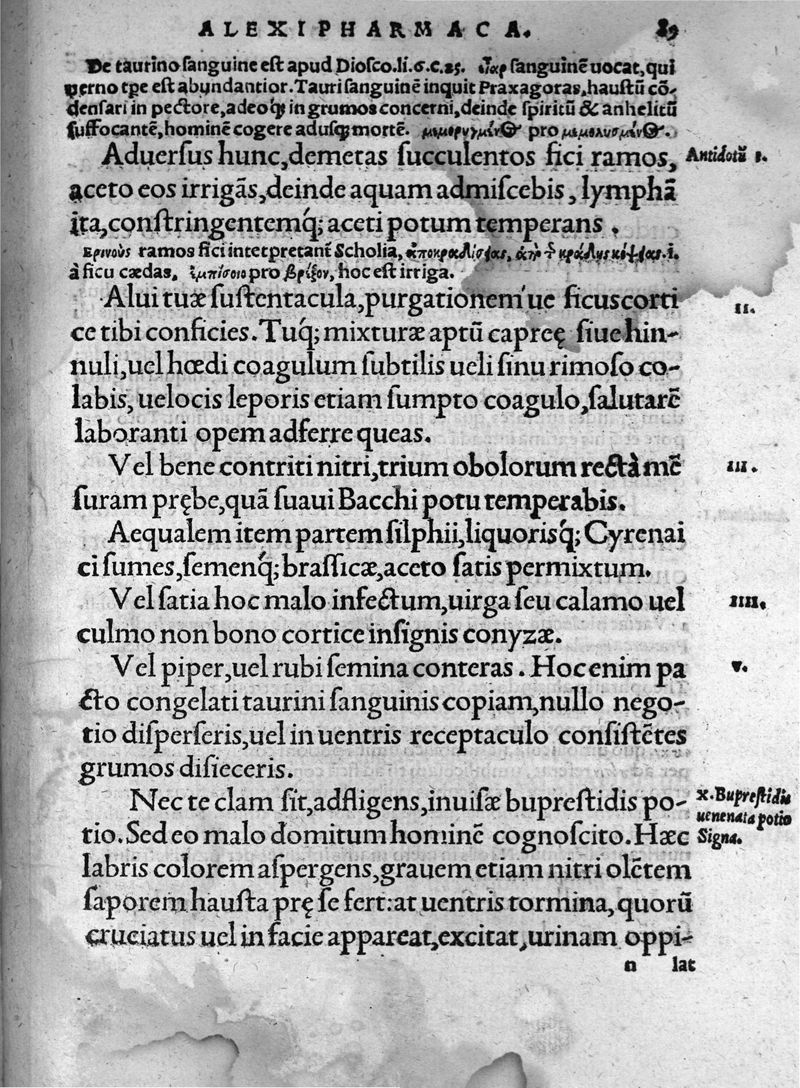 ALEXIPHARMACA. 89
De taurino ſanguine eſt apud Dioſco.li.6.c.25. ἶαρ ſanguinē uocat, qui
uerno tpe eſt abundantior. Tauri ſanguinē inquit Praxagoras, hauſtū cō-
denſari in pectore, adeoq; in grumos concerni, deinde ſpiritū & anhelitū
ſuffocantē, hominē cogere aduſq; mortē. pro
Aduerſus hunc, demetas ſucculentos fici ramos, Antidotū 1.
aceto eos irrigās, deinde aquam admiſcebis, lymphā
ita, conſtringentemq́; aceti potum temperans.
ερινοὺς ramos fici intetpretant̄ Scholia, .i.
à ficu cædas. ἐμπίσοιο pro βρίξον, hoc eſt irriga.
Alui tuæ ſuſtentacula, purgationem'ue ficus corti II.
ce tibi conficies. Tuq́; mixturæ aptū capreę ſiue hin-
nuli, uel hœdi coagulum ſubtilis ueli ſinu rimoſo co-
labis, uelocis leporis etiam ſumpto coagulo, ſalutarē
laboranti opem adferre queas.
Vel bene contriti nitri, trium obolorum rectà mē III.
ſuram prębe, quā ſuaui Bacchi potu temperabis.
Aequalem item partem ſilphii, liquorisq́; Cyrenai
ci ſumes, ſemenq́; braſſicæ, aceto ſatis permixtum.
Vel ſatia hoc malo infectum, uirga ſeu calamo uel IIII.
culmo non bono cortice inſignis conyzæ.
Vel piper, uel rubi ſemina conteras. Hoc enim pa V.
cto congelati taurini ſanguinis copiam, nullo nego-
tio diſperſeris, uel in uentris receptaculo conſiſtētes
grumos diſieceris.
Nec te clam ſit, adfligens, inuiſæ bupreſtidis po- X. Bupreſtidis
tio. Sed eo malo domitum hominē cognoſcito. Hæc uenenata potio
labris colorem aſpergens, grauem etiam nitri olētem Signa.
ſaporem hauſta prę ſe fert: at uentris tormina, quorū
cruciatus uel in facie appareat, excitat, urinam oppi-
n lat